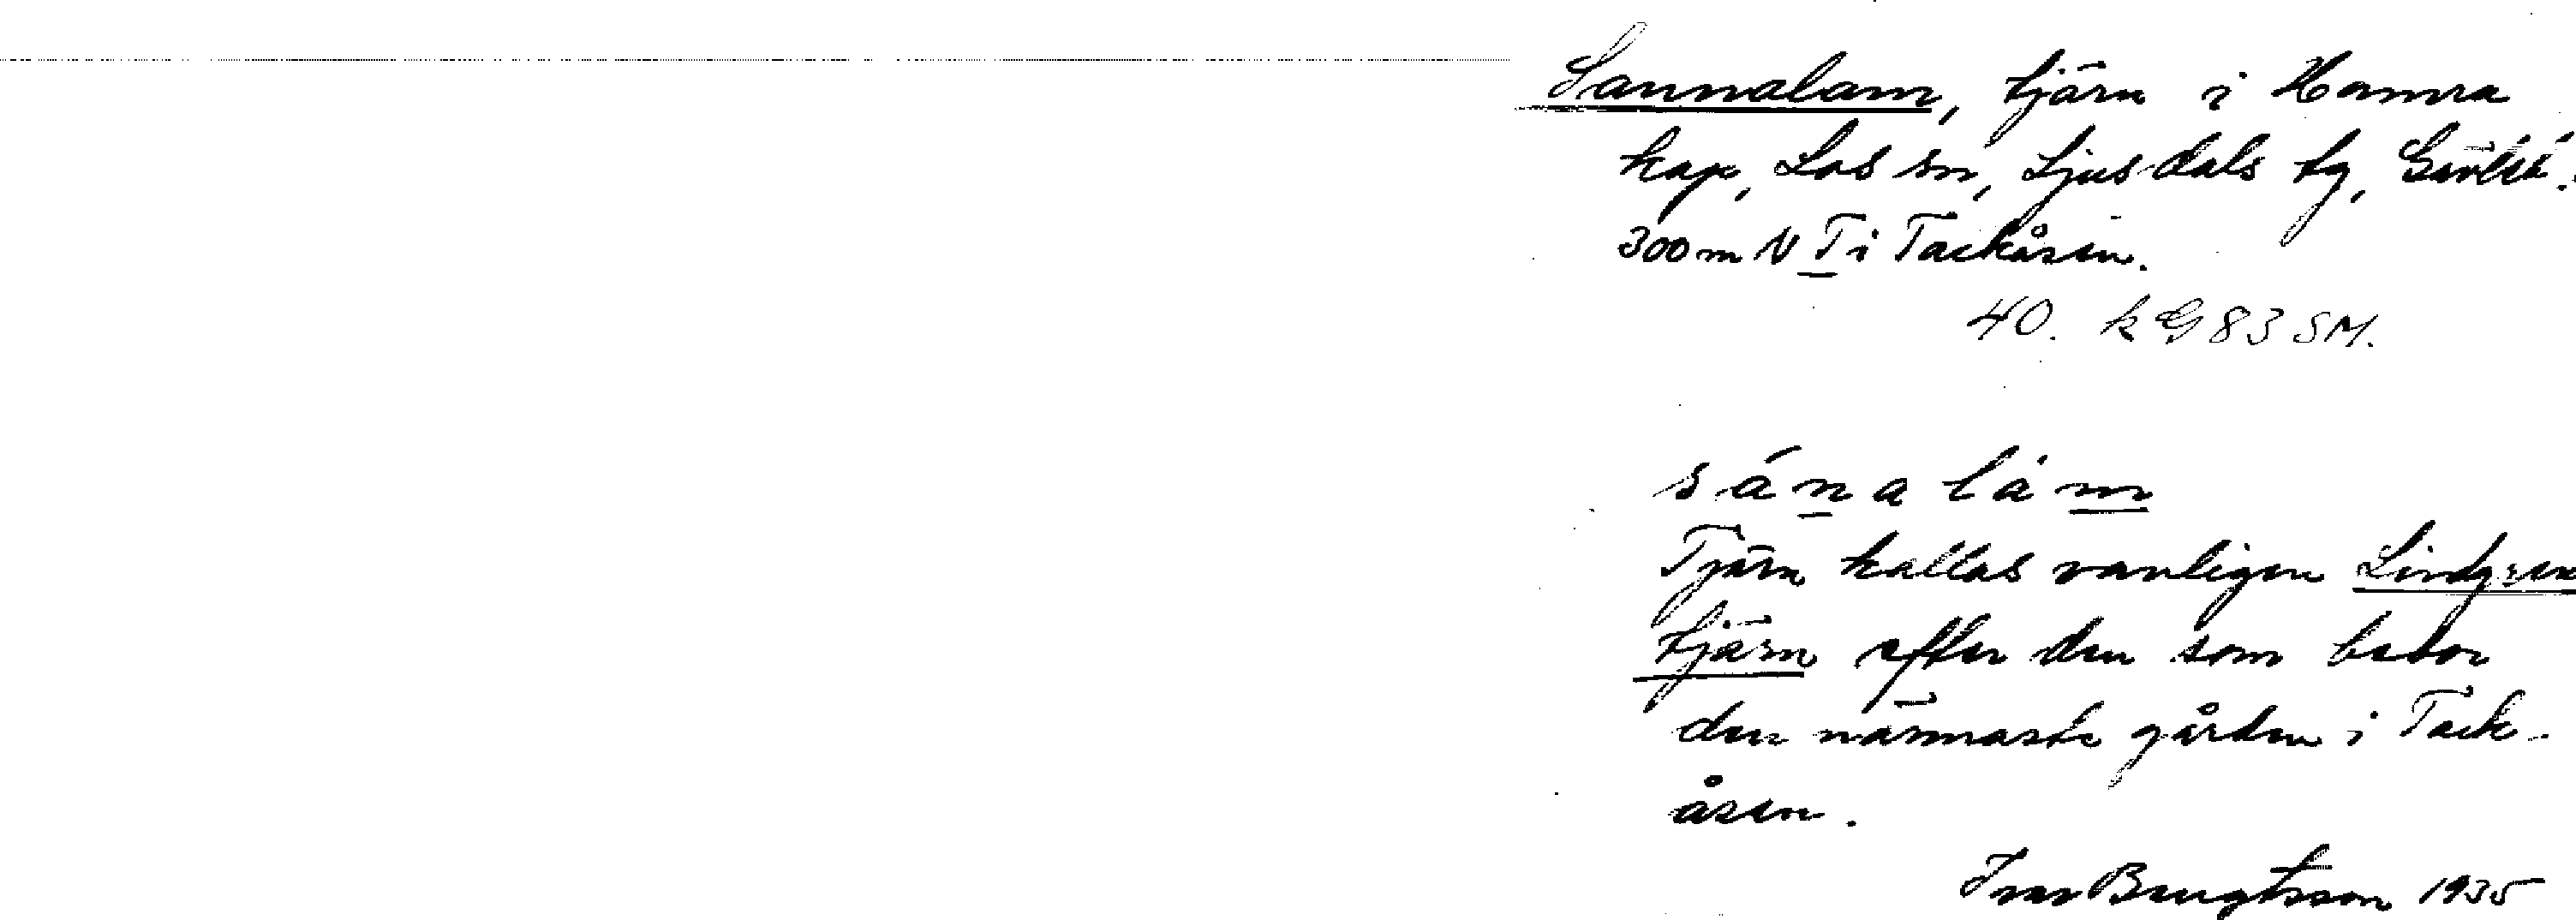 Sannalam, tjärn i Hamra
kap, Los sn, Ljusdals tg, Gävleb.
300 m N T i Tackåsen.
40. k G 83 SM.
s á n a l á m
Tjärn kallas vanligen Lindgren
tjärn efter den som bebor
den närmaste gården i Tack-
åsen.
Ivar Bengtsson 1935